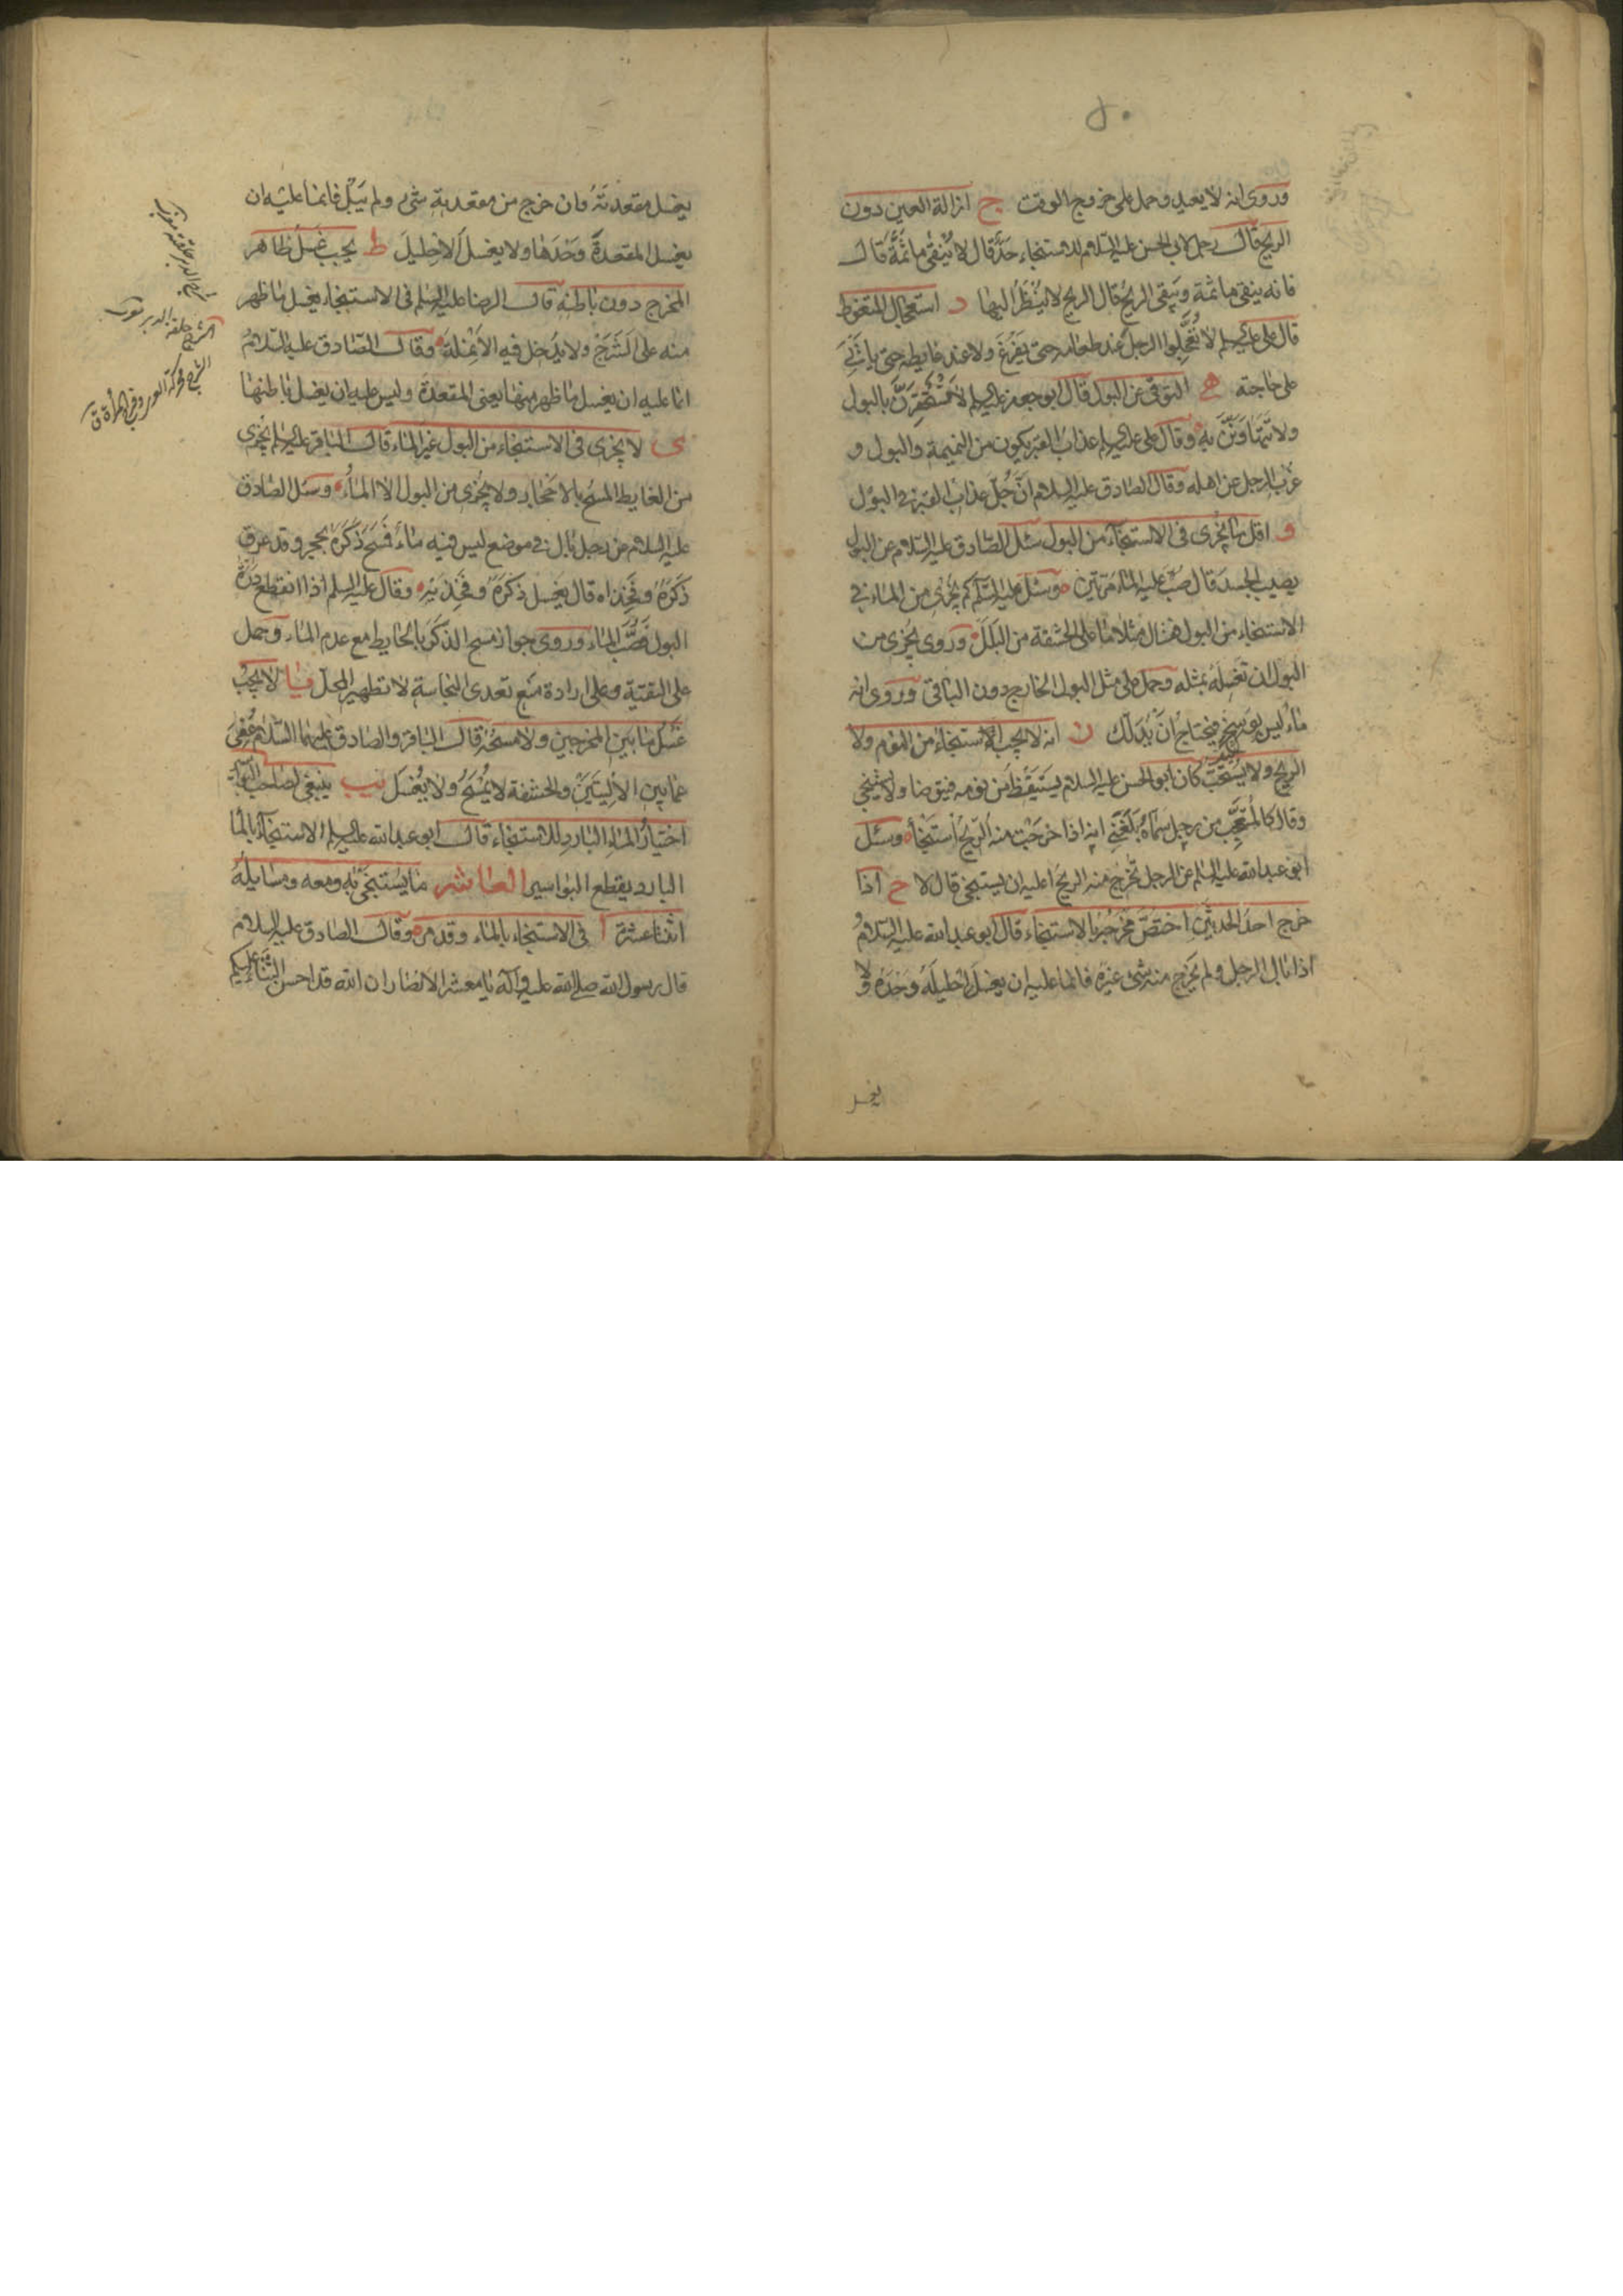 وروى انه لا يعيد وحمل على خروج الوقت ج ازالة العين دون
الريح قال رجل لابي الحسن عليه السلام للاستنجاء حد قال لا يُنقى ما ثَمَّة قال
فانه ينقى ما ثمة ويبقى الريح قال الريح لا يُنْظَرُ اليها د استعجال المتغوط
قال على عليه السلم لا تُعَجِّلوا الرجل عند طعامه حتى يَفْرُغَ ولا عند غايطه حتى ياتىَ
على حاجته هـ التوقى عن البول قال ابو جعفر عليه السلم لا تَسْتَحْقِرَنَّ بالبول
ولا تتهاوَنَنَّ به وقال على عليه السلم عذاب القبر يكون من النميمة والبول و
عزب الرجل عن اهله وقال الصادق عليه السلام انَّ جُلّ عذاب القبر في البول
و اقل ما يجزى فى الاستنجاء من البول سئل الصّادق عليه السّلام عن البول
يصيب الجسد قال صُبَّ عليه الماء مرّتين وسئل عليه السَّلم كم يُجْزِى من الماء في
الاستنجاء من البول فقال مثلا ما على الحشفة من البَلَلِ وروى يجزى من
البول ان تَغسِلَهُ بمثله وحمل على مثل البول الخارج دون الباقى وروى انه
ماءٌ ليس بوسخٍ فيحتاج أنْ يُدلَك ز انه لا يجب الاستنجاء من النوم ولا
الريح ولا يُسْتَحَبّ كان ابو الحسن عليه السلام يَسْتَيْقِظُ من نومه فيتوضا ولا يستنجى
وقال كالمُتَعَجِّب من رجل سَمّاهُ بَلَغَنِى انه اذا خرجَتْ منه الريحُ استنجا وسئل
ابو عبد الله عليه السلم عن الرجل تخرج منه الريح اعليه ان يستنجى قال لا ح اذا
خرج احدُ الحدثَيْنِ اختصَّ مَخْرَجُهُ بالاستنجاء قال ابو عبد الله عليه السّلامُ
اذا بال الرجل ولم يَخْرج منه شىءٌ غيرُهُ فانما عليه ان يغسلَ اِحْليلَهُ وَحْدَهُ ولا
يغسل
يغسل مقعدتَهُ وان خرج من مقعدتهِ شىء ولم يَبُلْ فانما عليْه ان
يغسل المقعدةَ وَحْدَها ولا يغسلَ الاِحْليلَ ط يجب غَسلُ ظاهر
المخرج دون باطنهِ قال الرضا عليه السلم فى الاستنجاء يغسل ما ظهر
منه على الشَّرَج ولا يدخل فيه الاَنْملةَ وقال الصّادق عليه السّلامُ
انما عليه ان يغسل ما ظهر منها يعنى المقعدة وليس عليه ان يغسل باطنها
ى لا يجزى فى الاستنجاء من البول غير الماء قال الباقر عليه السلم يجزى
من الغايط المسحُ بالاحجار ولا يجزى من البول الا الماءُ وسئل الصّادق
عليه السلام عن رجل بال في موضع ليس فيه ماءٌ فمسَحَ ذَكَرَهُ بحجر وقد عرق
ذَكَرُهُ وفَخِذاه قال يغسل ذكَرَهُ وفَخِذَيْهِ وقال عليه السلم اذا انقطع دِرَّةُ
البول فَصُبَّ الماء وروى جواز مسح الذَّكَر بالحايط مع عدم الماء وحمل
على التقيّة وعلى ارادة منع تعدى النجاسة لا تطهير المحل يا لا يجب
غَسْلُ ما بين المخرجين ولا مسحُهُ قال الباقر والصادق عليهما السّلام عُفِىَ
عما بين الاَلِيَتَيْنِ والحشفة لا يُمْسَحُ ولا يُغْسَل يب ينبغى لصاحب البواسير
اختيارُ الماءِ الباردِ للاستنجاء قال ابو عبد الله عليه السلم الاستنجاء بالماء
البارد يقطع البواسير العاشر ما يُستَنْجَى بهِ ومعه ومسايلُهُ
اثنا عشرة ا فى الاستنجاء بالماء وقد مر وقال الصّادق عليه السلام
قال رسول الله صلى الله عليه وآله يا معشر الانصار ان الله قد احسن الثناء عليكم
الشرج حلقة الدبر
الشرج محركة العرى وفرج المرأة ق